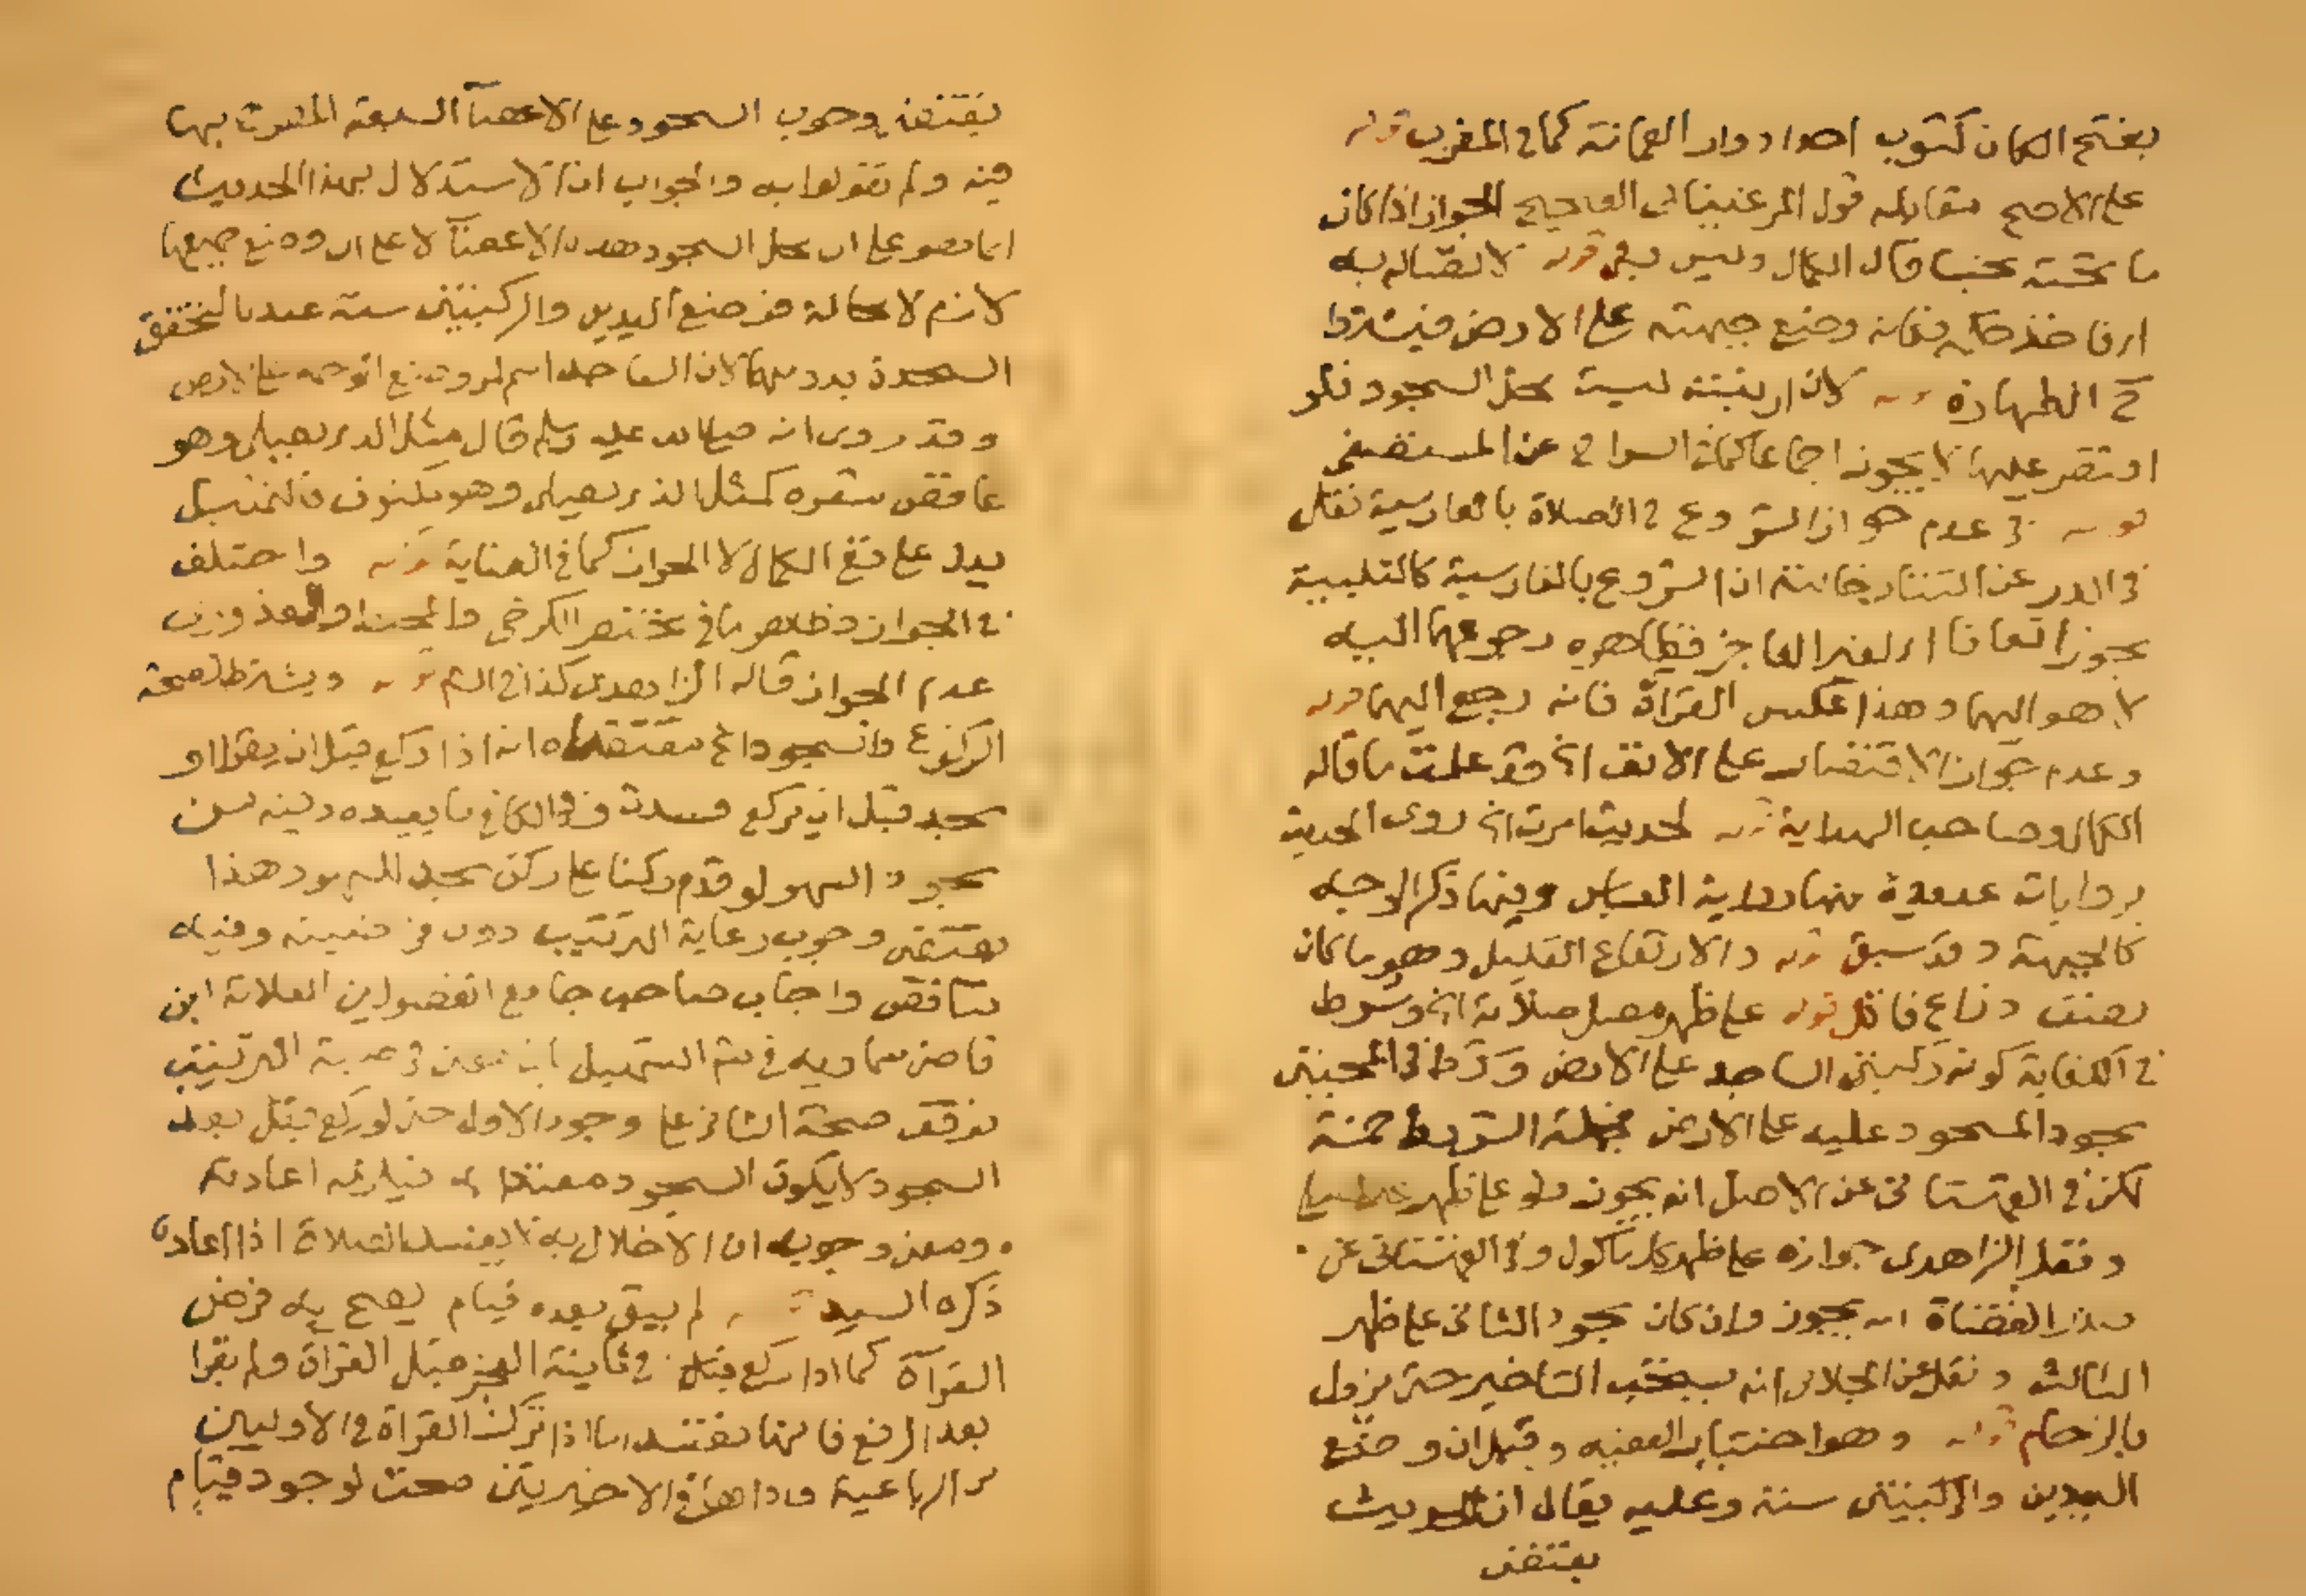 بفتح الكاف كثوب احد ادوار العمامة كما في المغرب قوله
على الاصح مقابله قول المرغيناني الصحيح الجواز اذا كان
ما تحته نجسا قال الكمال وليس بشي قوله لاتصاله به
فكانه وضع جبهته على الارض فيشترط
الطهارة قوله لان ارنبته ليست محل السجود فلو
اقتصر عليها لا يجوز اجماعا كما في السراج عن المستصفى
قوله في عدم جواز الشروع في الصلاة بالفارسية نقل
في الدر عن التتارخانية ان الشروع بالفارسية كالتلبية
يجوز اتفاقا اي لغير العاجز فظاهره رجوعهما اليه
لا هو اليهما وهذا عكس القراة فانه رجع اليهما قوله
وعدم جواز الاقتصار على الانف الخ قد علمت ما قاله
الكمال وصاحب الهداية قوله لحديث امرت الخ روى الحديث
بروايات عديدة منها رواية العباس وفيها ذكر الوجه
كالجبهة وقد سبق قوله والارتفاع القليل وهو ما كان
نصف ذراع فاقل قوله على ظهر مصل صلاته الخ وشرط
في الكفاية كون ركبتي الساجد على الارض وشرط في المجتبى
سجود المسجود عليه على الارض فجملة الشروط خمسة
لكن في القهستاني عن الاصل انه يجوز ولو على ظهر غير المصلي
ونقل الزاهدي جوازه على ظهر كل ماكول وفي القهستاني عن
صدر القضاة انه يجوز وان كان سجود الثاني على ظهر
الثالث ونقل عن الجلابي انه يستحب التاخير حتى يزول
الزحام قوله وهو اختيار الفقيه وقيل ان وضع
اليدين والركبتين سنة وعليه يقال ان الحديث
يقتضي
يقتضي وجوب السجود على الاعضآ السبعة المصرح بها
فيه ولم تقولوا به والجواب ان الاستدلال بهذا الحديث
انما هو على ان محل السجود هذه الاعضآ لا على ان وضع جميعها
لازم لا محالة فوضع اليدين والركبتين سنة عندنا لتحقق
السجدة بدونهما لان الساجد اسم لمن وضع الوجه على الارض
وقد روى انه صلى الله عليه وسلم قال مثل الذي يصلي وهو
عاقص شعره كمثل الذي يصلي وهو مكتوف فالتمثيل
يدل على نفي الكمال لا الجواز كما في العناية قوله واختلف
في الجواز وظاهر ما في مختصر الكرخي والمحيط والقدوري
عدم الجواز قاله الزاهدي كذا في الشرح قوله ويشترط لصحة
الركوع والسجود الخ مقتضاه انه اذا ركع قبل ان يقرا او
سجد قبل ان يركع فسدت وفي الكافي ما يفيده وفيه من
سجود السهو لو قدم ركنا على ركن سجد للسهو وهذا
يقتضي وجوب رعاية الترتيب دون فرضيته وفيه
تناقض واجاب صاحب جامع الفصولين العلامة ابن
قاضي سماويه في شرح التسهيل بان معنى فرضية الترتيب
توقف صحة الثاني على وجود الاول حتى لو ركع قبل بعد
السجود لا يكون السجود معتدا به فيلزمه اعادته
ومعنى وجوبه ان الاخلال به لا يفسد الصلاة اذا اعاده
ذكره السيد قوله لم يبق بعده قيام يصح به فرض
القرآة كما اذا ركع قبل في ثانية الفجر قبل القراة ولم يقرا
بعد الرفع فانها تفسد اما اذا ترك القراة في الاوليين
من الرباعية واداها في الاخيرتين صحت لوجود قيام